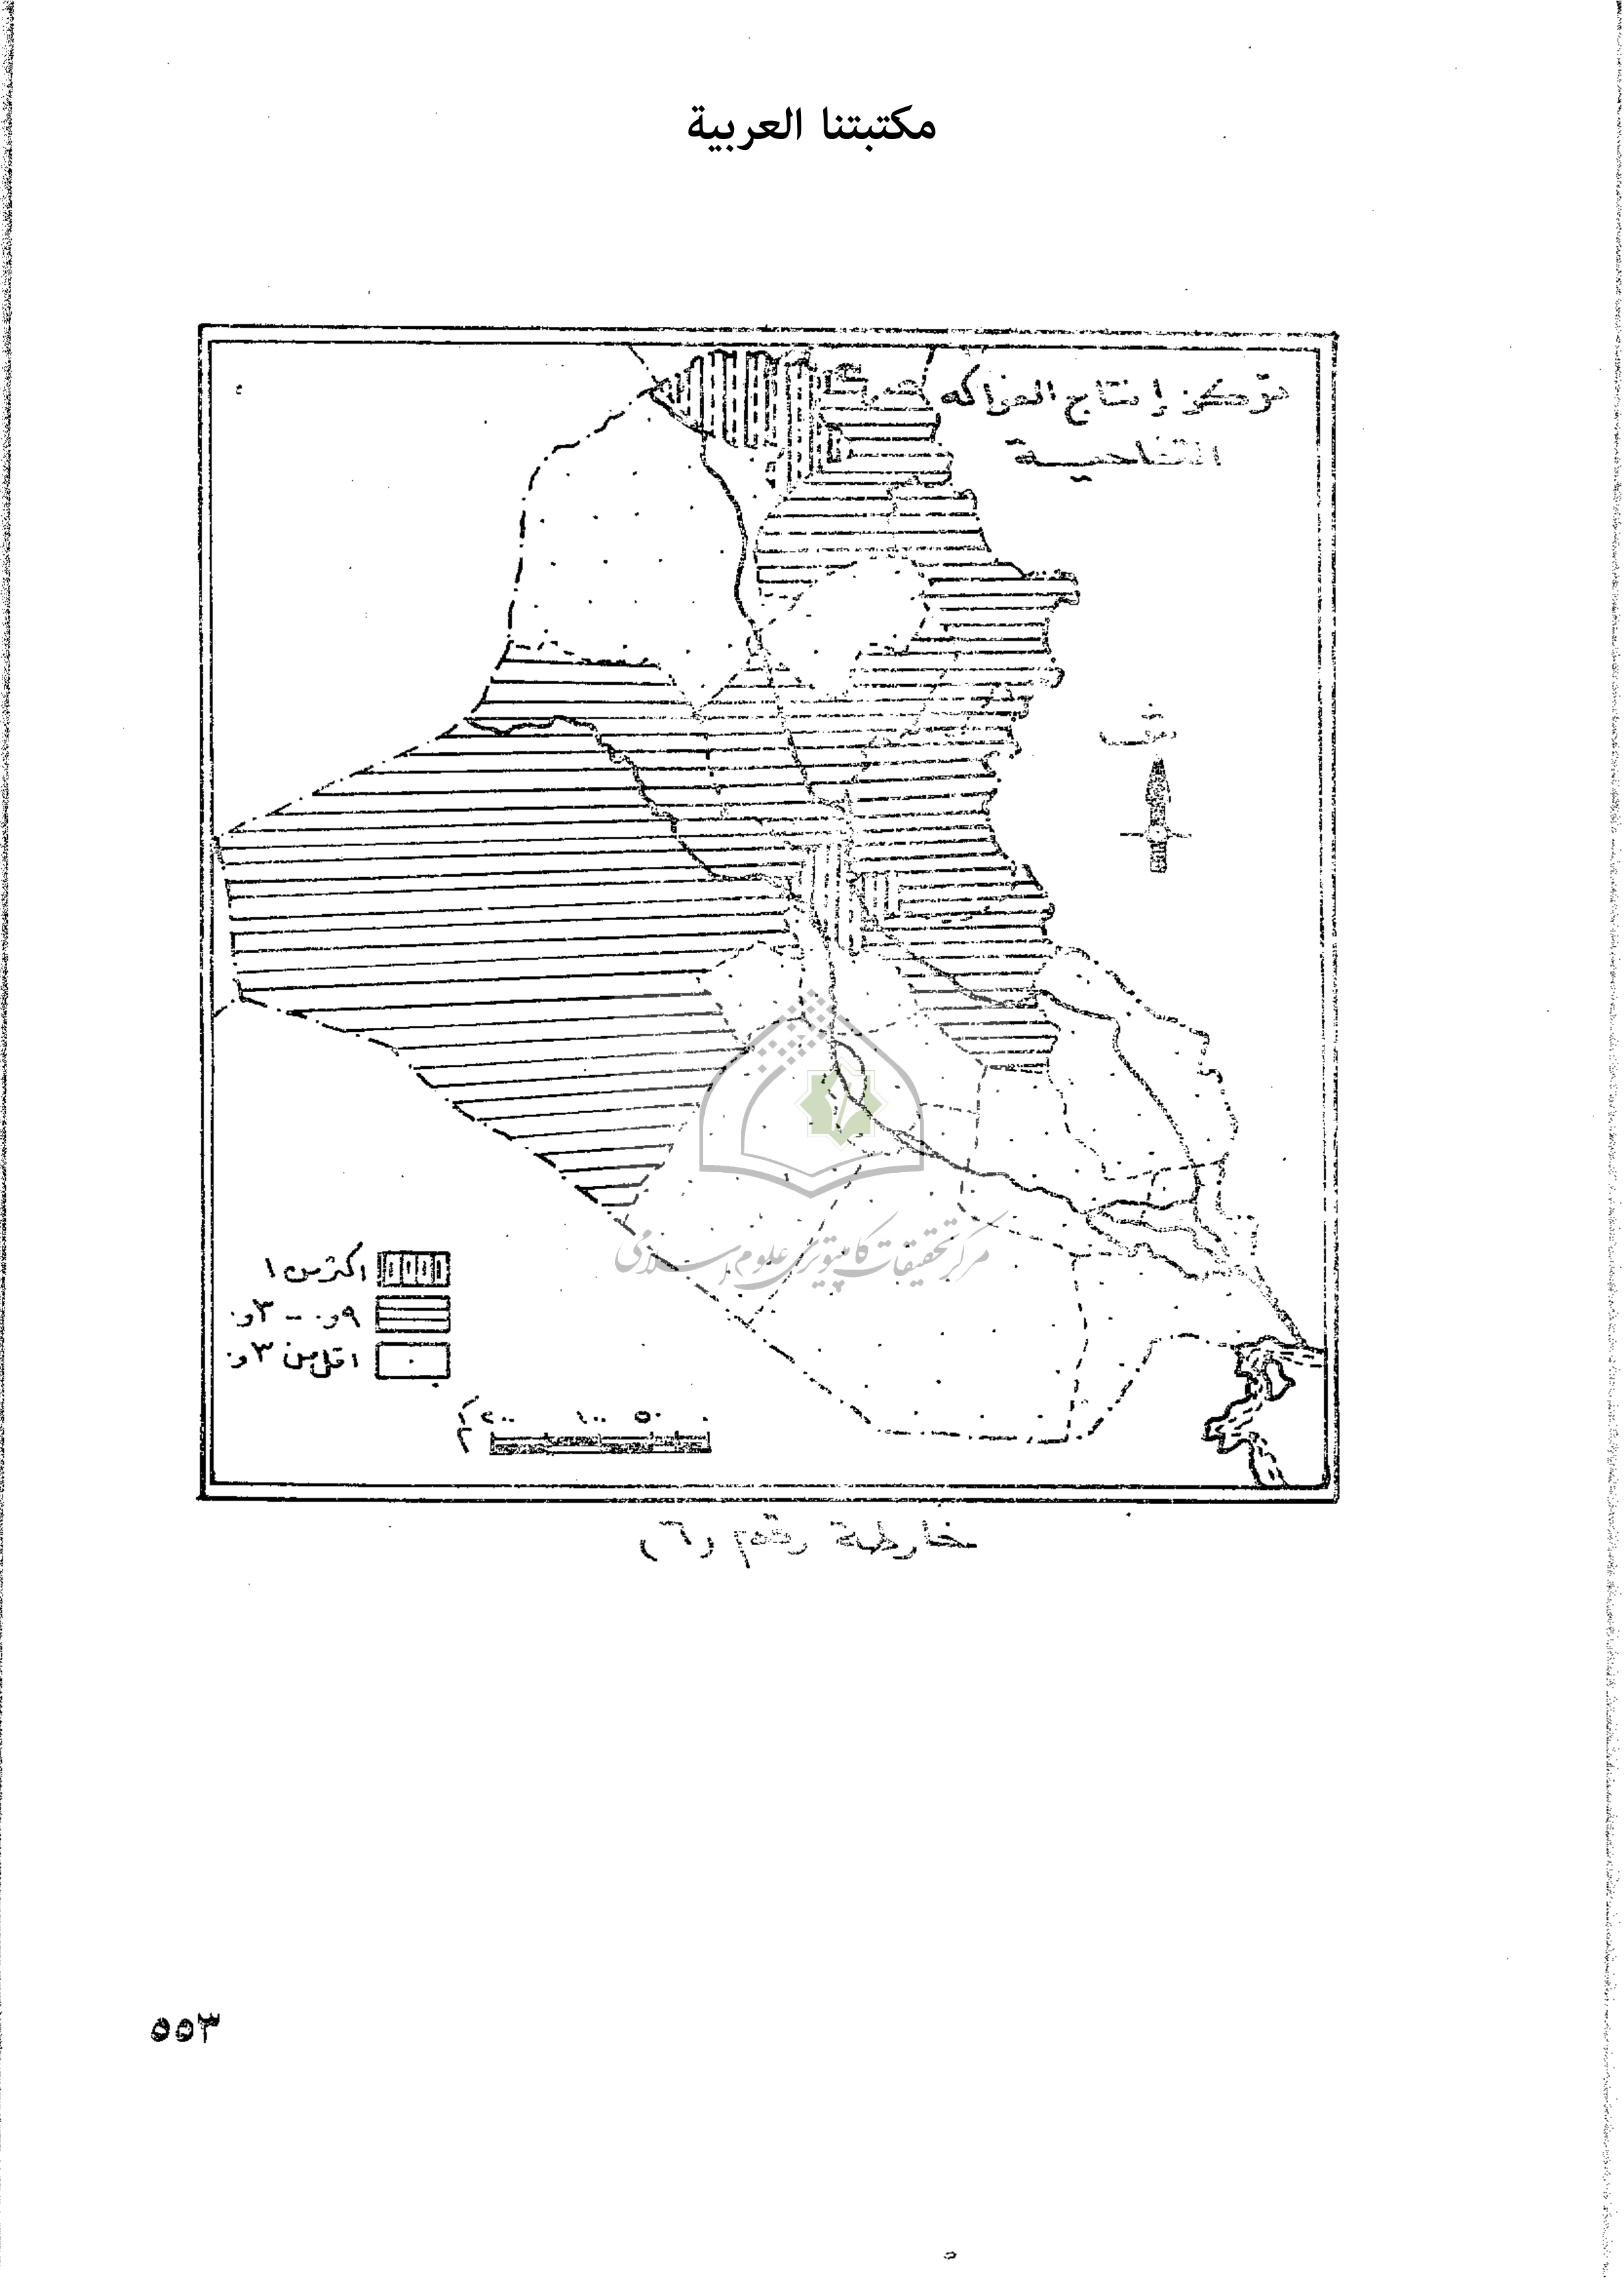 مكتبتنا العربية
تركز إنتاج الفواكه
التفاحية
اكثر من ١
٩و٠ - ٣و٠
اقل من ٣و٠
٢٠٠ ١٠٠ ٥٠ ٠
مركز تحقيقات كامپيوتری علوم اسلامی
خارطة رقم (٦)
٥٥٣